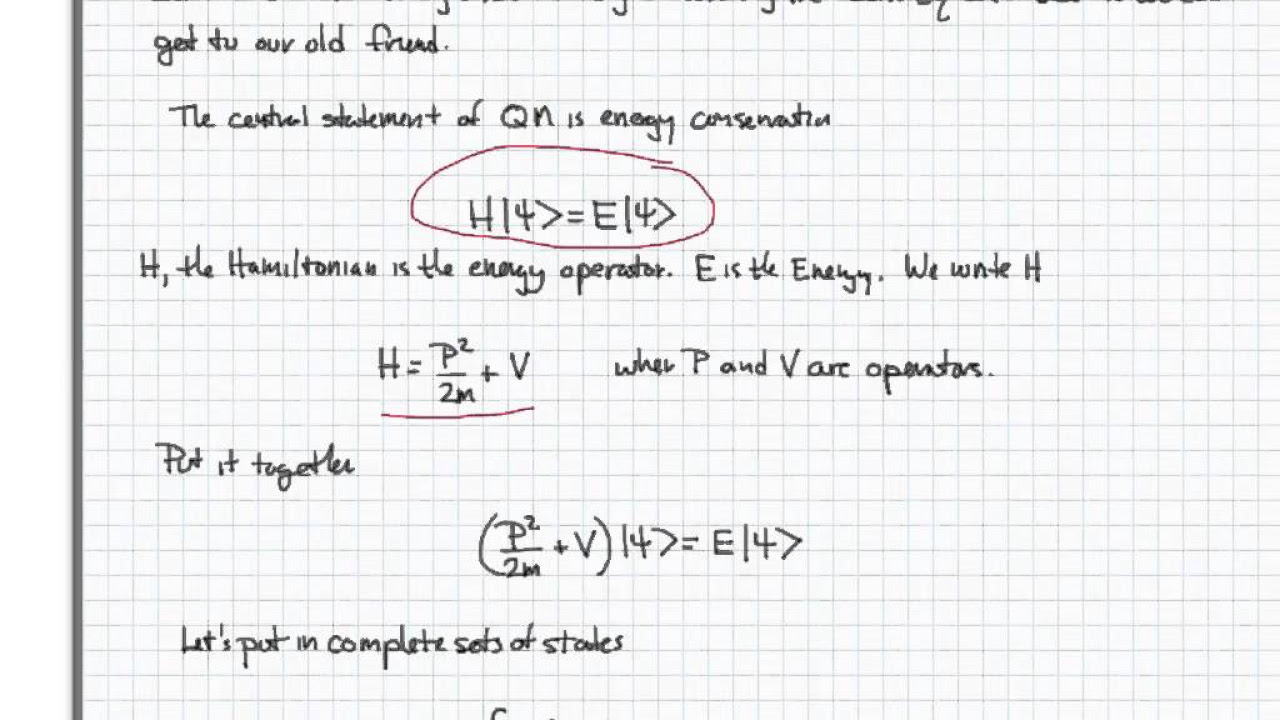 get to our old friend.
The central statement of QM is energy conservation
H|ψ>=E|ψ>
H, the Hamiltonian is the energy operator. E is the Energy. We write H
H = P²/2m + V wher P and V are operators.
Put it together
(P²/2m + V)|ψ>= E|ψ>
Let's put in complete sets of states